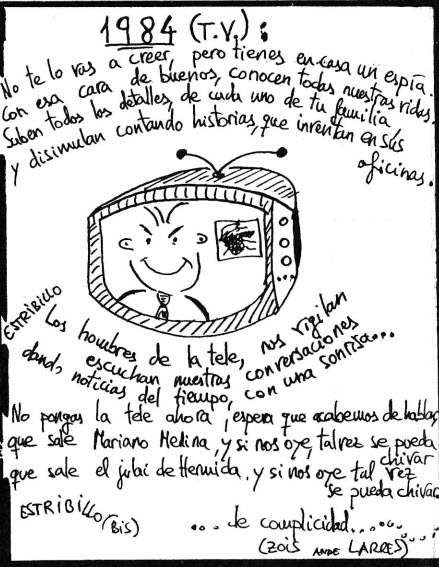 1984 (T.V.):
No te lo vas a creer, pero tienes en casa un espía.
Con esa cara de buenos, conocen todas nuestras vidas.
Saben todos los detalles, de cada uno de tu familia
y disimulan contando historias, que inventan en sus
oficinas.
ESTRIBILLO
Los hombres de la tele, nos vigilan
escuchan nuestras conversaciones
dando noticias del tiempo, con una sonrisa...
No pongas la tele ahora, espera que acabemos de hablar,
que sale Mariano Medina, y si nos oye, tal vez se pueda
chivar
que sale el jubai de Hermida, y si nos oye tal vez
se pueda chivar.
ESTRIBILLO (BIS)
... de complicidad......
(ZOIS ANDE LARRES)